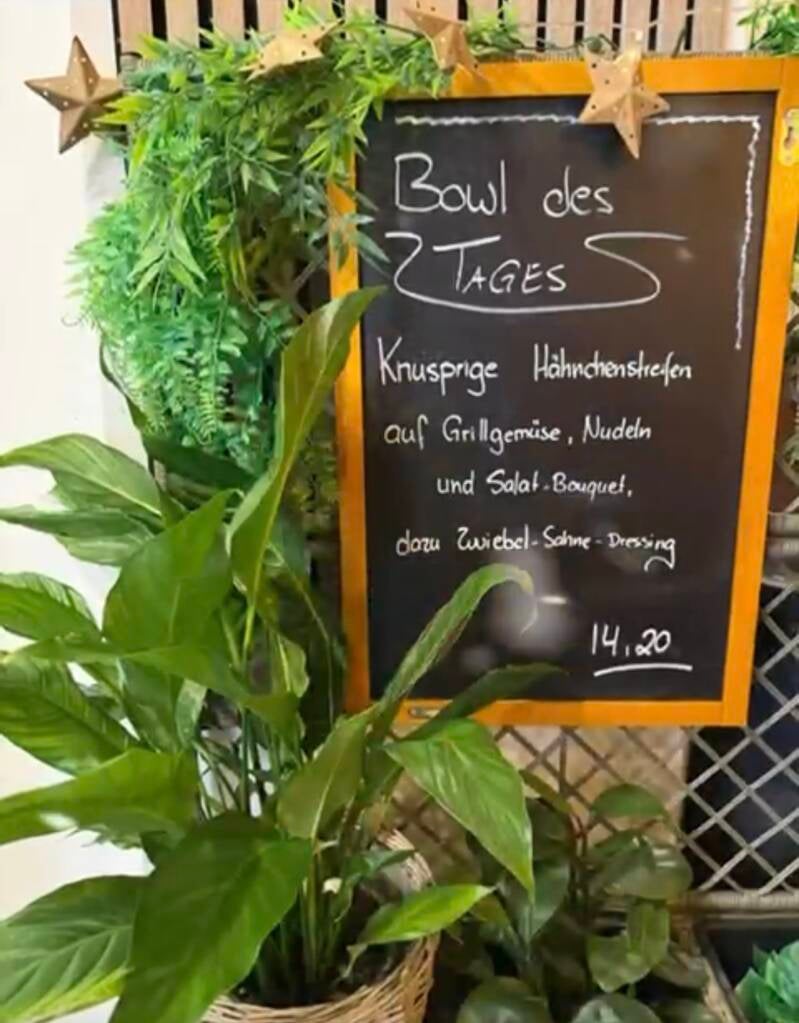 Bowl des
TAGES
Knusprige Hähnchenstreifen
auf Grillgemüse, Nudeln
und Salat-Bouquet,
dazu Zwiebel-Sahne-Dressing
14,20